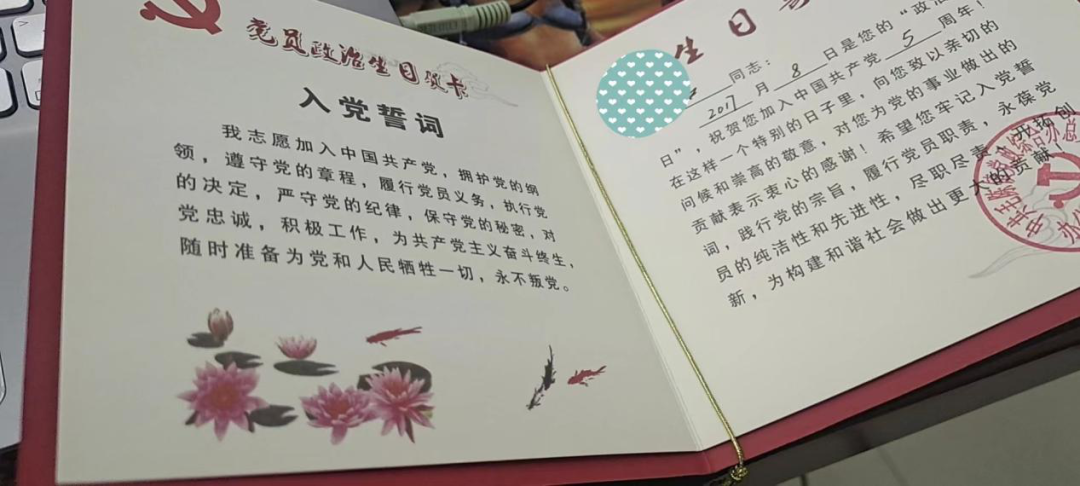 党员政治生日贺卡
入党誓词
我志愿加入中国共产党，拥护党的纲
领，遵守党的章程，履行党员义务，执行党
的决定，严守党的纪律，保守党的秘密，对
党忠诚，积极工作，为共产主义奋斗终生，
随时准备为党和人民牺牲一切，永不叛党。
生日
同志：
2017月8日是您的“政治
日”，祝贺您加入中国共产党5周年！
在这样一个特别的日子里，向您致以亲切的
问候和崇高的敬意，对您为党的事业做出的
贡献表示衷心的感谢！希望您牢记入党誓
词，践行党的宗旨，履行党员职责，永葆党
员的纯洁性和先进性，尽职尽责，开拓创
新，为构建和谐社会做出更大的贡献！